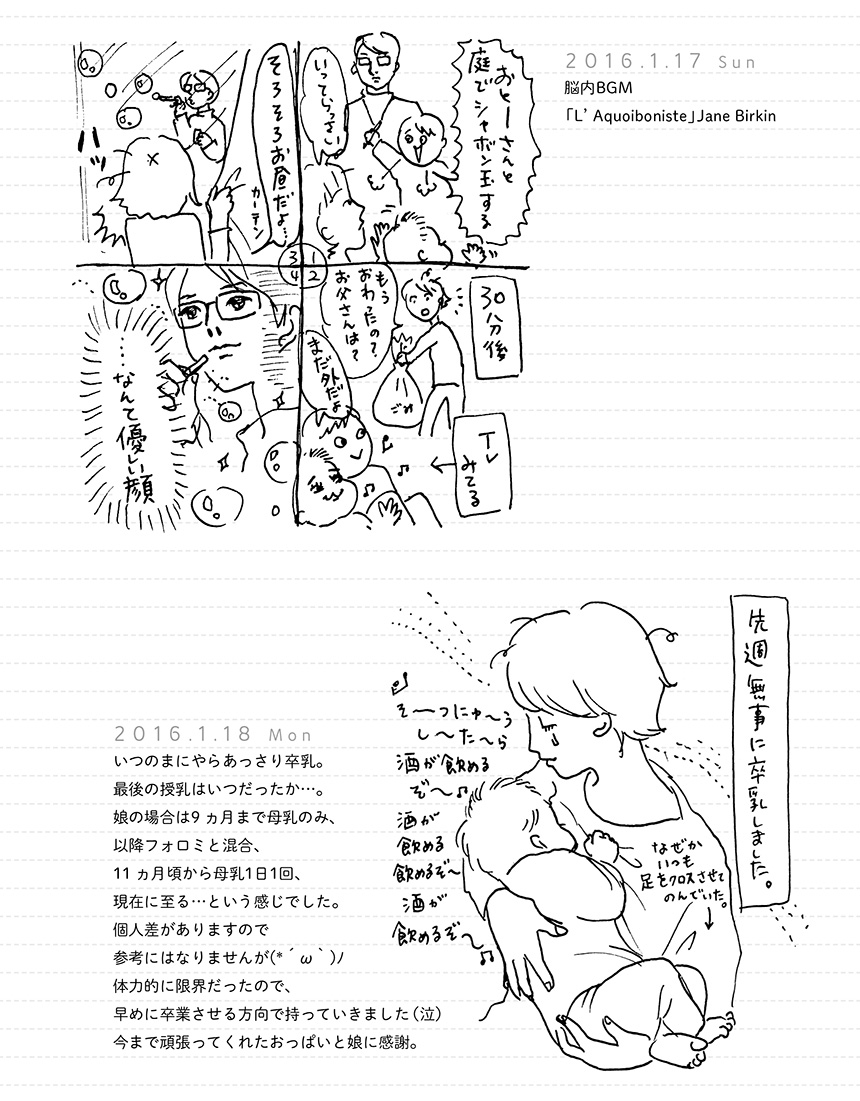 2016.1.17 Sun
脳内BGM
「L' Aquoiboniste」Jane Birkin
おとーさんと
庭でシャボン玉する
いってらっさい
30分後
もう
おわったの？
お父さんは？
まだ外だよ
ごみ
TV
みてる
そろそろお昼だよ…
カーテン
ハッ
…なんて優しい顔
1
2
3
4
先週無事に卒乳しました。
♪
そ〜〜つにゅ〜う
し〜た〜ら
酒が飲める
ぞ〜♫
酒が
飲める
飲めるぞ〜
酒が
飲めるぞ〜
♫
なぜか
いつも
足をクロスさせて
のんでいた。
2016.1.18 Mon
いつのまにやらあっさり卒乳。
最後の授乳はいつだったか…。
娘の場合は9ヵ月まで母乳のみ、
以降フォロミと混合、
11ヵ月頃から母乳1日1回、
現在に至る…という感じでした。
個人差がありますので
参考にはなりませんが(*´ω｀)ﾉ
体力的に限界だったので、
早めに卒業させる方向で持っていきました（泣）
今まで頑張ってくれたおっぱいと娘に感謝。